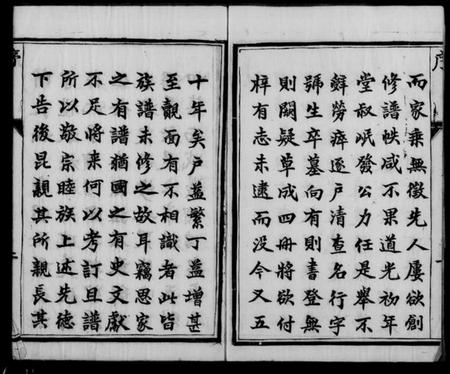 而家乘無徵先人屢欲創
修譜帙咸不果道光初年
堂叔岷發公力任是舉不
辭勞瘁逐戶清查名行字
號生卒墓向有則書登無
則闕疑草成四冊將欲付
梓有志未逮而没今又五
十年矣戶益繁丁益增甚
至覿面有不相識者此皆
族譜未修之故耳竊思家
之有譜猶國之有史文獻
不足將来何以考訂且譜
所以敬宗睦族上述先德
下告後昆親其所親長其
序
二